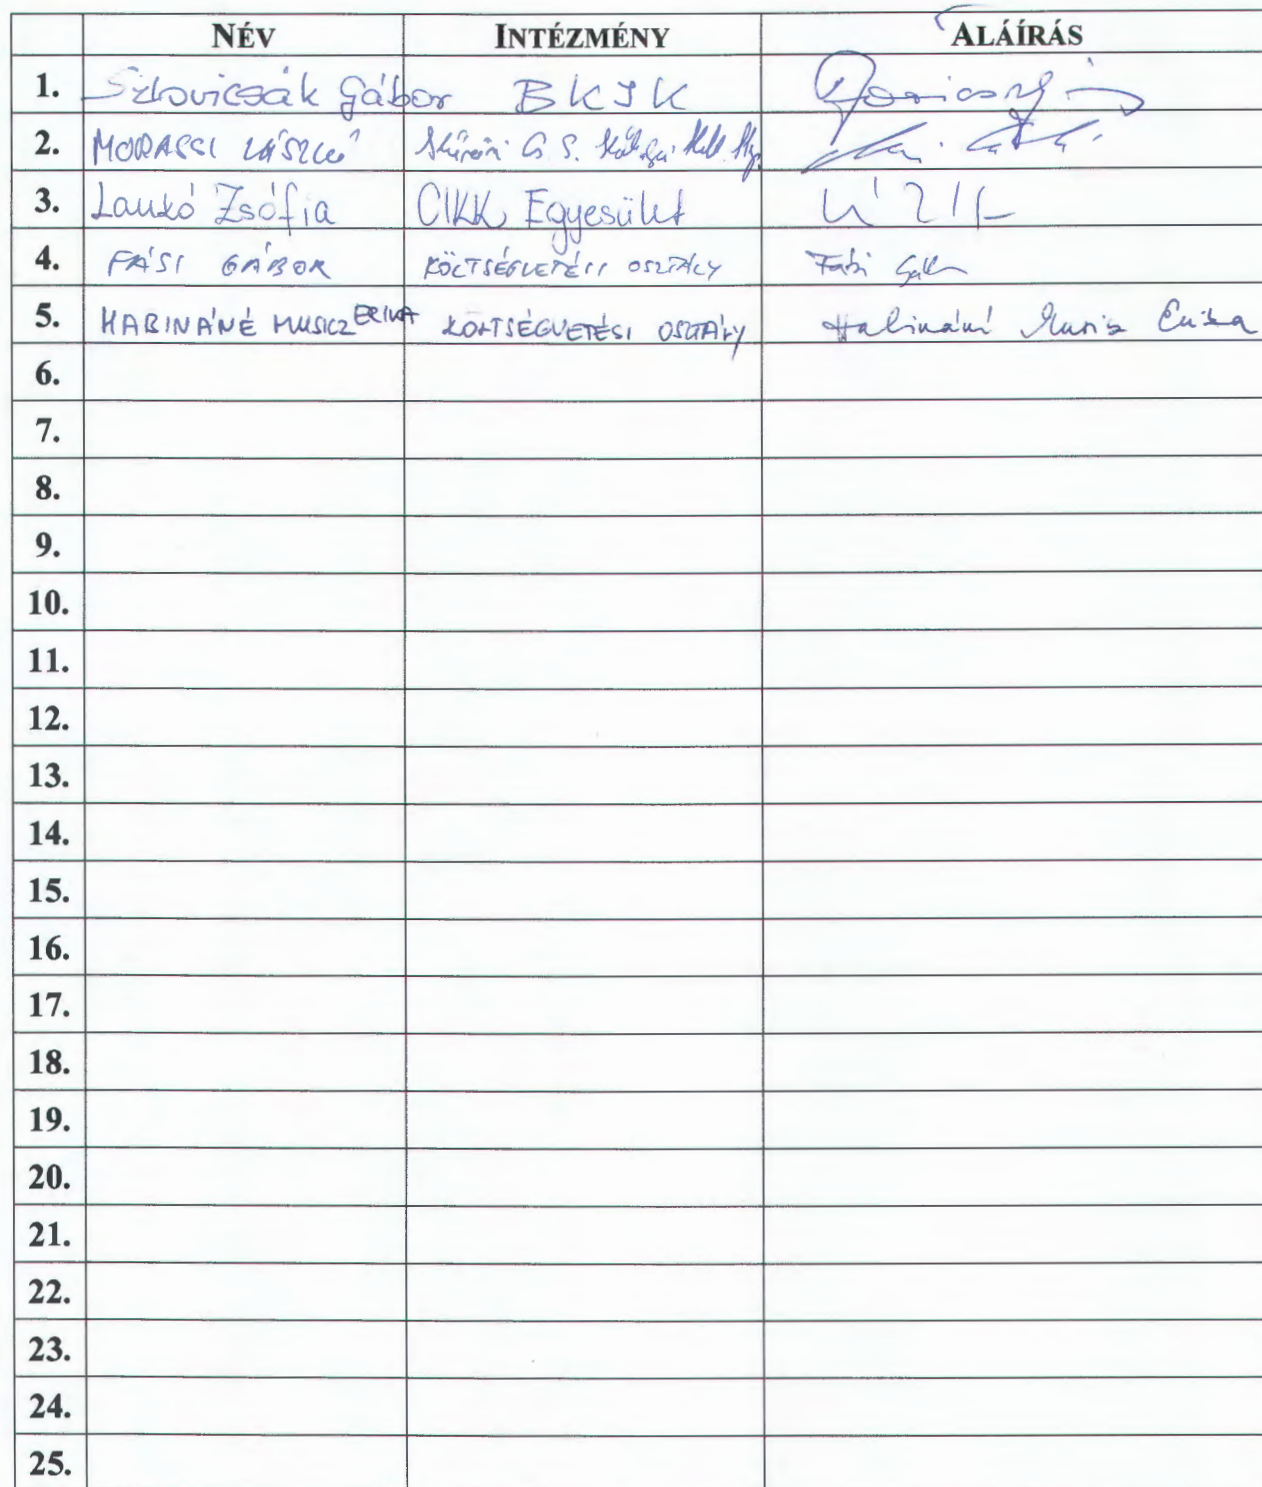 NÉV INTÉZMÉNY ALÁÍRÁS
1. Szlovicsák Gábor BKIK
2. MORASSI LÁSZLÓ G. S.
3. Laukó Zsófia CIKK Egyesület
4. FÁSI GÁBOR KÖLTSÉGVETÉSI OSZTÁLY Fási Gábor
5. HABINÁNÉ MUSICZ ERIKA KÖLTSÉGVETÉSI OSZTÁLY Habináné Musicz Erika
6.
7.
8.
9.
10.
11.
12.
13.
14.
15.
16.
17.
18.
19.
20.
21.
22.
23.
24.
25.